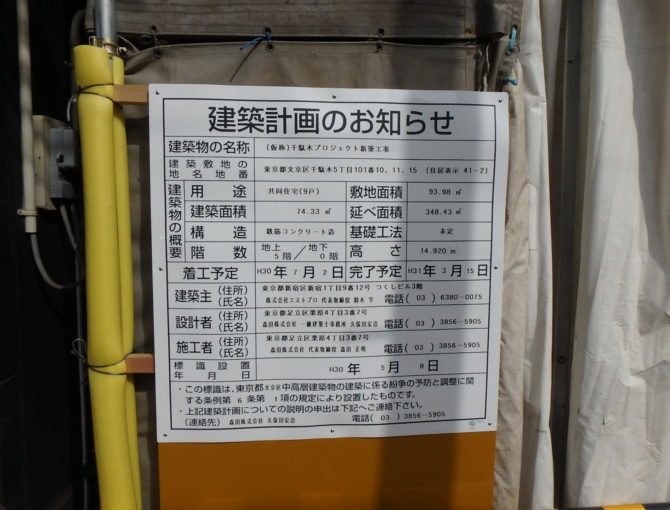 建築計画のお知らせ
建築物の名称 (仮称)千駄木プロジェクト新築工事
建築敷地の地名地番 東京都文京区千駄木5丁目101番10、11、15 (住居表示 41-2)
建築物の概要
用途 共同住宅(9戸) 敷地面積 93.98 ㎡
建築面積 74.33 ㎡ 延べ面積 348.43 ㎡
構造 鉄筋コンクリート造 基礎工法 未定
階数 地上 5階/地下 0階 高さ 14.920 m
着工予定 H30年 7月 2日 完了予定 H31年 3月 15日
建築主 (住所) 東京都新宿区新宿1丁目9番12号 つくしビル3階
(氏名) 株式会社エストプロ 代表取締役 鈴木 亨 電話(03)6380-0075
設計者 (住所) 東京都足立区栗原4丁目3番7号
(氏名) 森田株式会社 一級建築士事務所 久保田宏治 電話(03)3856-5905
施工者 (住所) 東京都足立区栗原4丁目3番7号
(氏名) 森田株式会社 代表取締役 森田 正明 電話(03)3856-5905
標識設置年月日 H30 年 5 月 8 日
・この標識は、東京都文京区中高層建築物の建築に係る紛争の予防と調整に関
する条例第 6 条第 1 項の規定により設置したものです。
・上記建築計画についての説明の申出は下記へご連絡下さい。
(連絡先) 森田株式会社 久保田宏治 電話(03)3856-5905